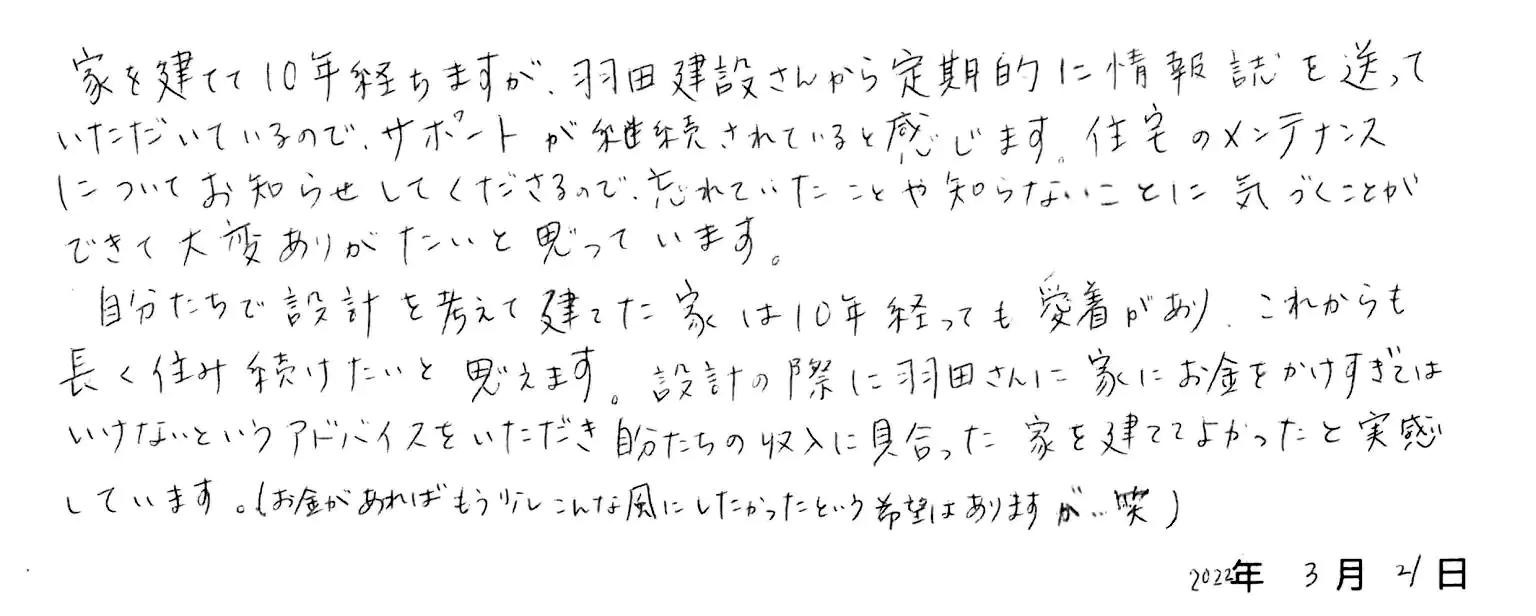 家を建てて10年経ちますが、羽田建設さんから定期的に情報誌を送って
いただいているので、サポートが継続されていると感じます。住宅のメンテナンス
についてお知らせしてくださるので、忘れていたことや知らないことに気づくことが
できて大変ありがたいと思っています。
自分たちで設計を考えて建てた家は10年経っても愛着があり、これからも
長く住み続けたいと思えます。設計の際に羽田さんに家にお金をかけすぎては
いけないというアドバイスをいただき自分たちの収入に見合った家を建ててよかったと実感
しています。(お金があればもう少しこんな風にしたかったという希望はありますが…笑)
2022年 3月 21日